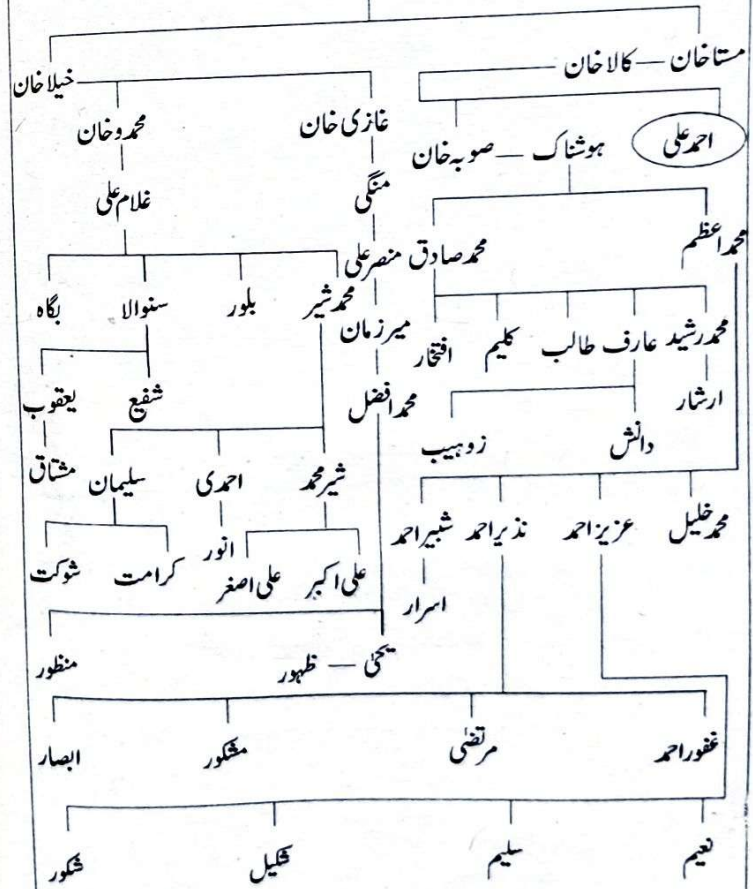 مستاخان — کالاخان
خیلاخان
غازی خان
محمدوخان
احمد علی
ہوشناک — صوبہ خان
منگی
غلام علی
محمداعظم
محمدصادق
منصر علی
محمدشیر
بلور
سنوالا
بگاہ
محمدرشید
عارف
طالب
کلیم
افتخار
میرزمان
ارشار
محمدافضل
شفیع
یعقوب
دانش
زوہیب
شیرمحمد
احمدی
سلیمان
مشتاق
محمدخلیل
عزیزاحمد
نذیراحمد
شبیراحمد
علی اکبر
علی اصغر
انور
کرامت
شوکت
اسرار
یحیٰ — ظہور
منظور
غفوراحمد
مرتضیٰ
مشکور
ابصار
نعیم
سلیم
شکیل
شکور